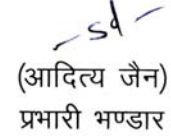 -sd-
(आदित्य जैन)
प्रभारी भण्डार